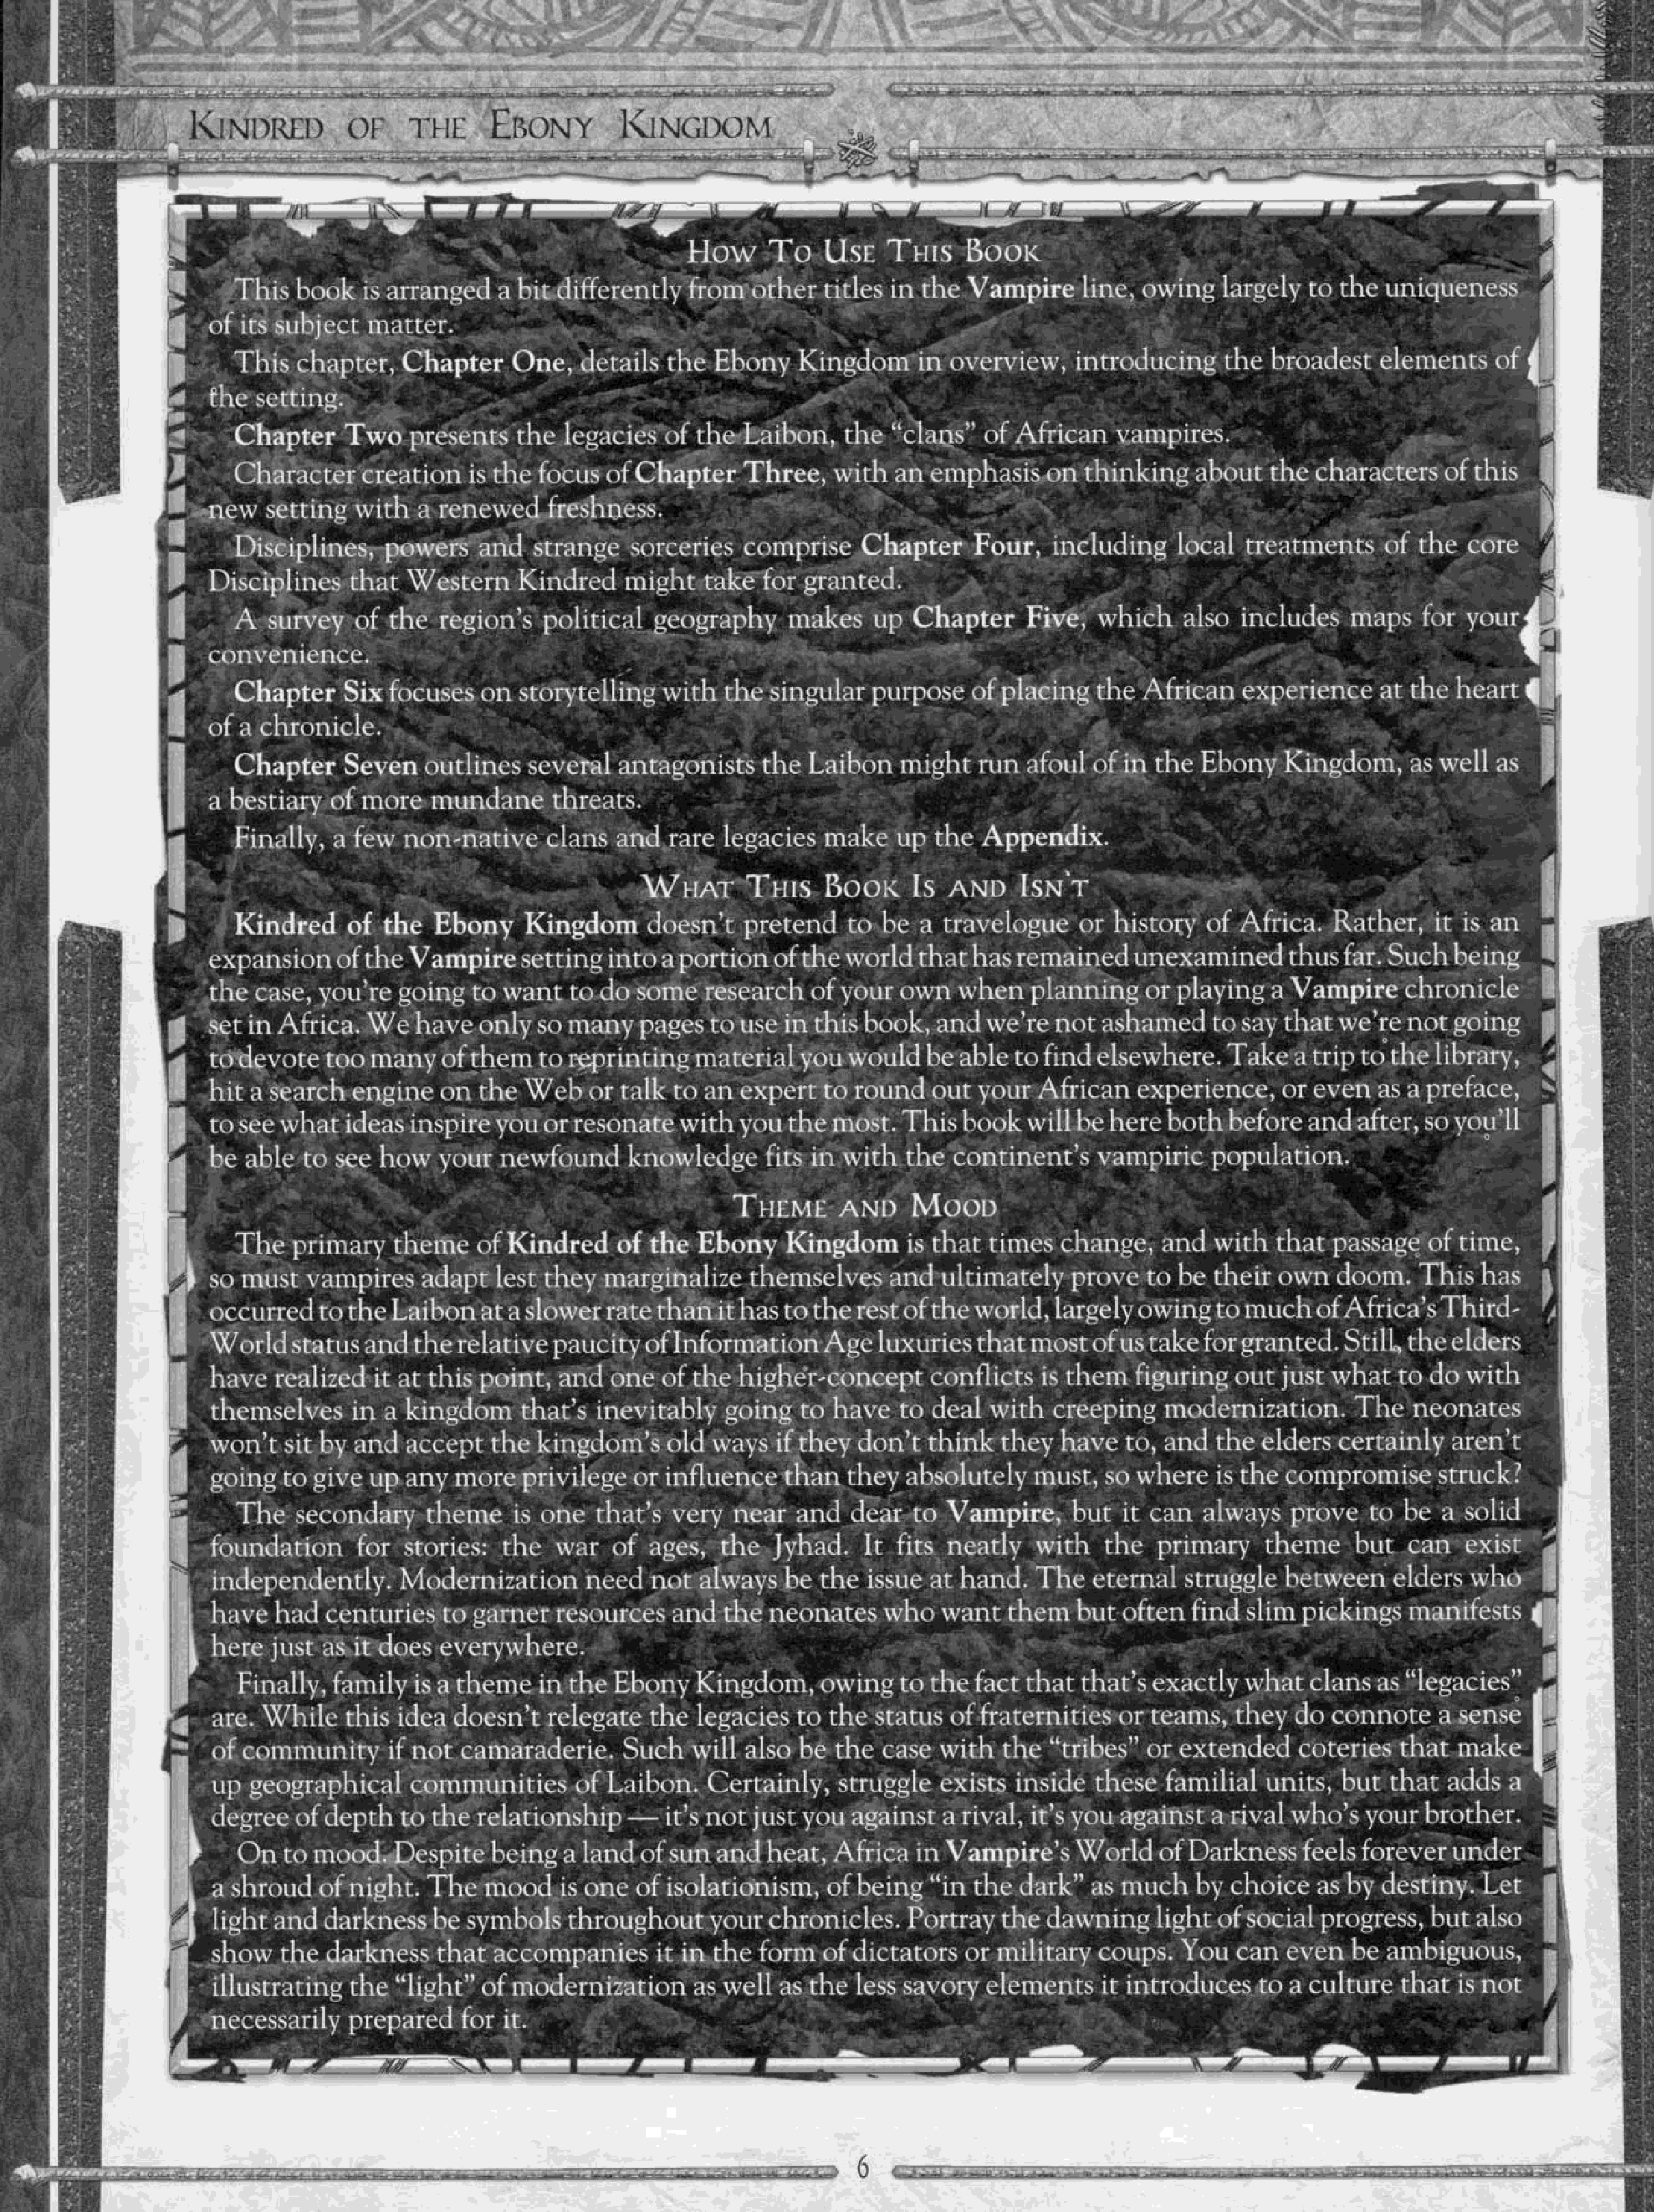 KINDRED OF THE EBONY KINGDOM
HOW TO USE THIS BOOK
This book is arranged a bit differently from other titles in the Vampire line, owing largely to the uniqueness
of its subject matter.
This chapter, Chapter One, details the Ebony Kingdom in overview, introducing the broadest elements of
the setting.
Chapter Two presents the legacies of the Laibon, the “clans” of African vampires.
Character creation is the focus of Chapter Three, with an emphasis on thinking about the characters of this
new setting with a renewed freshness.
Disciplines, powers and strange sorceries comprise Chapter Four, including local treatments of the core
Disciplines that Western Kindred might take for granted.
A survey of the region’s political geography makes up Chapter Five, which also includes maps for your
convenience.
Chapter Six focuses on storytelling with the singular purpose of placing the African experience at the heart
of a chronicle.
Chapter Seven outlines several antagonists the Laibon might run afoul of in the Ebony Kingdom, as well as
a bestiary of more mundane threats.
Finally, a few non-native clans and rare legacies make up the Appendix.
WHAT THIS BOOK IS AND ISN’T
Kindred of the Ebony Kingdom doesn’t pretend to be a travelogue or history of Africa. Rather, it is an
expansion of the Vampire setting into a portion of the world that has remained unexamined thus far. Such being
the case, you’re going to want to do some research of your own when planning or playing a Vampire chronicle
set in Africa. We have only so many pages to use in this book, and we’re not ashamed to say that we’re not going
to devote too many of them to reprinting material you would be able to find elsewhere. Take a trip to the library,
hit a search engine on the Web or talk to an expert to round out your African experience, or even as a preface,
to see what ideas inspire you or resonate with you the most. This book will be here both before and after, so you’ll
be able to see how your newfound knowledge fits in with the continent’s vampiric population.
THEME AND MOOD
The primary theme of Kindred of the Ebony Kingdom is that times change, and with that passage of time,
so must vampires adapt lest they marginalize themselves and ultimately prove to be their own doom. This has
occurred to the Laibon at a slower rate than it has to the rest of the world, largely owing to much of Africa’s Third-
World status and the relative paucity of Information Age luxuries that most of us take for granted. Still, the elders
have realized it at this point, and one of the higher-concept conflicts is them figuring out just what to do with
themselves in a kingdom that’s inevitably going to have to deal with creeping modernization. The neonates
won’t sit by and accept the kingdom’s old ways if they don’t think they have to, and the elders certainly aren’t
going to give up any more privilege or influence than they absolutely must, so where is the compromise struck?
The secondary theme is one that’s very near and dear to Vampire, but it can always prove to be a solid
foundation for stories: the war of ages, the Jyhad. It fits neatly with the primary theme but can exist
independently. Modernization need not always be the issue at hand. The eternal struggle between elders who
have had centuries to garner resources and the neonates who want them but often find slim pickings manifests
here just as it does everywhere.
Finally, family is a theme in the Ebony Kingdom, owing to the fact that that’s exactly what clans as “legacies”
are. While this idea doesn’t relegate the legacies to the status of fraternities or teams, they do connote a sense
of community if not camaraderie. Such will also be the case with the “tribes” or extended coteries that make
up geographical communities of Laibon. Certainly, struggle exists inside these familial units, but that adds a
degree of depth to the relationship — it’s not just you against a rival, it’s you against a rival who’s your brother.
On to mood. Despite being a land of sun and heat, Africa in Vampire’s World of Darkness feels forever under
a shroud of night. The mood is one of isolationism, of being “in the dark” as much by choice as by destiny. Let
light and darkness be symbols throughout your chronicles. Portray the dawning light of social progress, but also
show the darkness that accompanies it in the form of dictators or military coups. You can even be ambiguous,
illustrating the “light” of modernization as well as the less savory elements it introduces to a culture that is not
necessarily prepared for it.
6